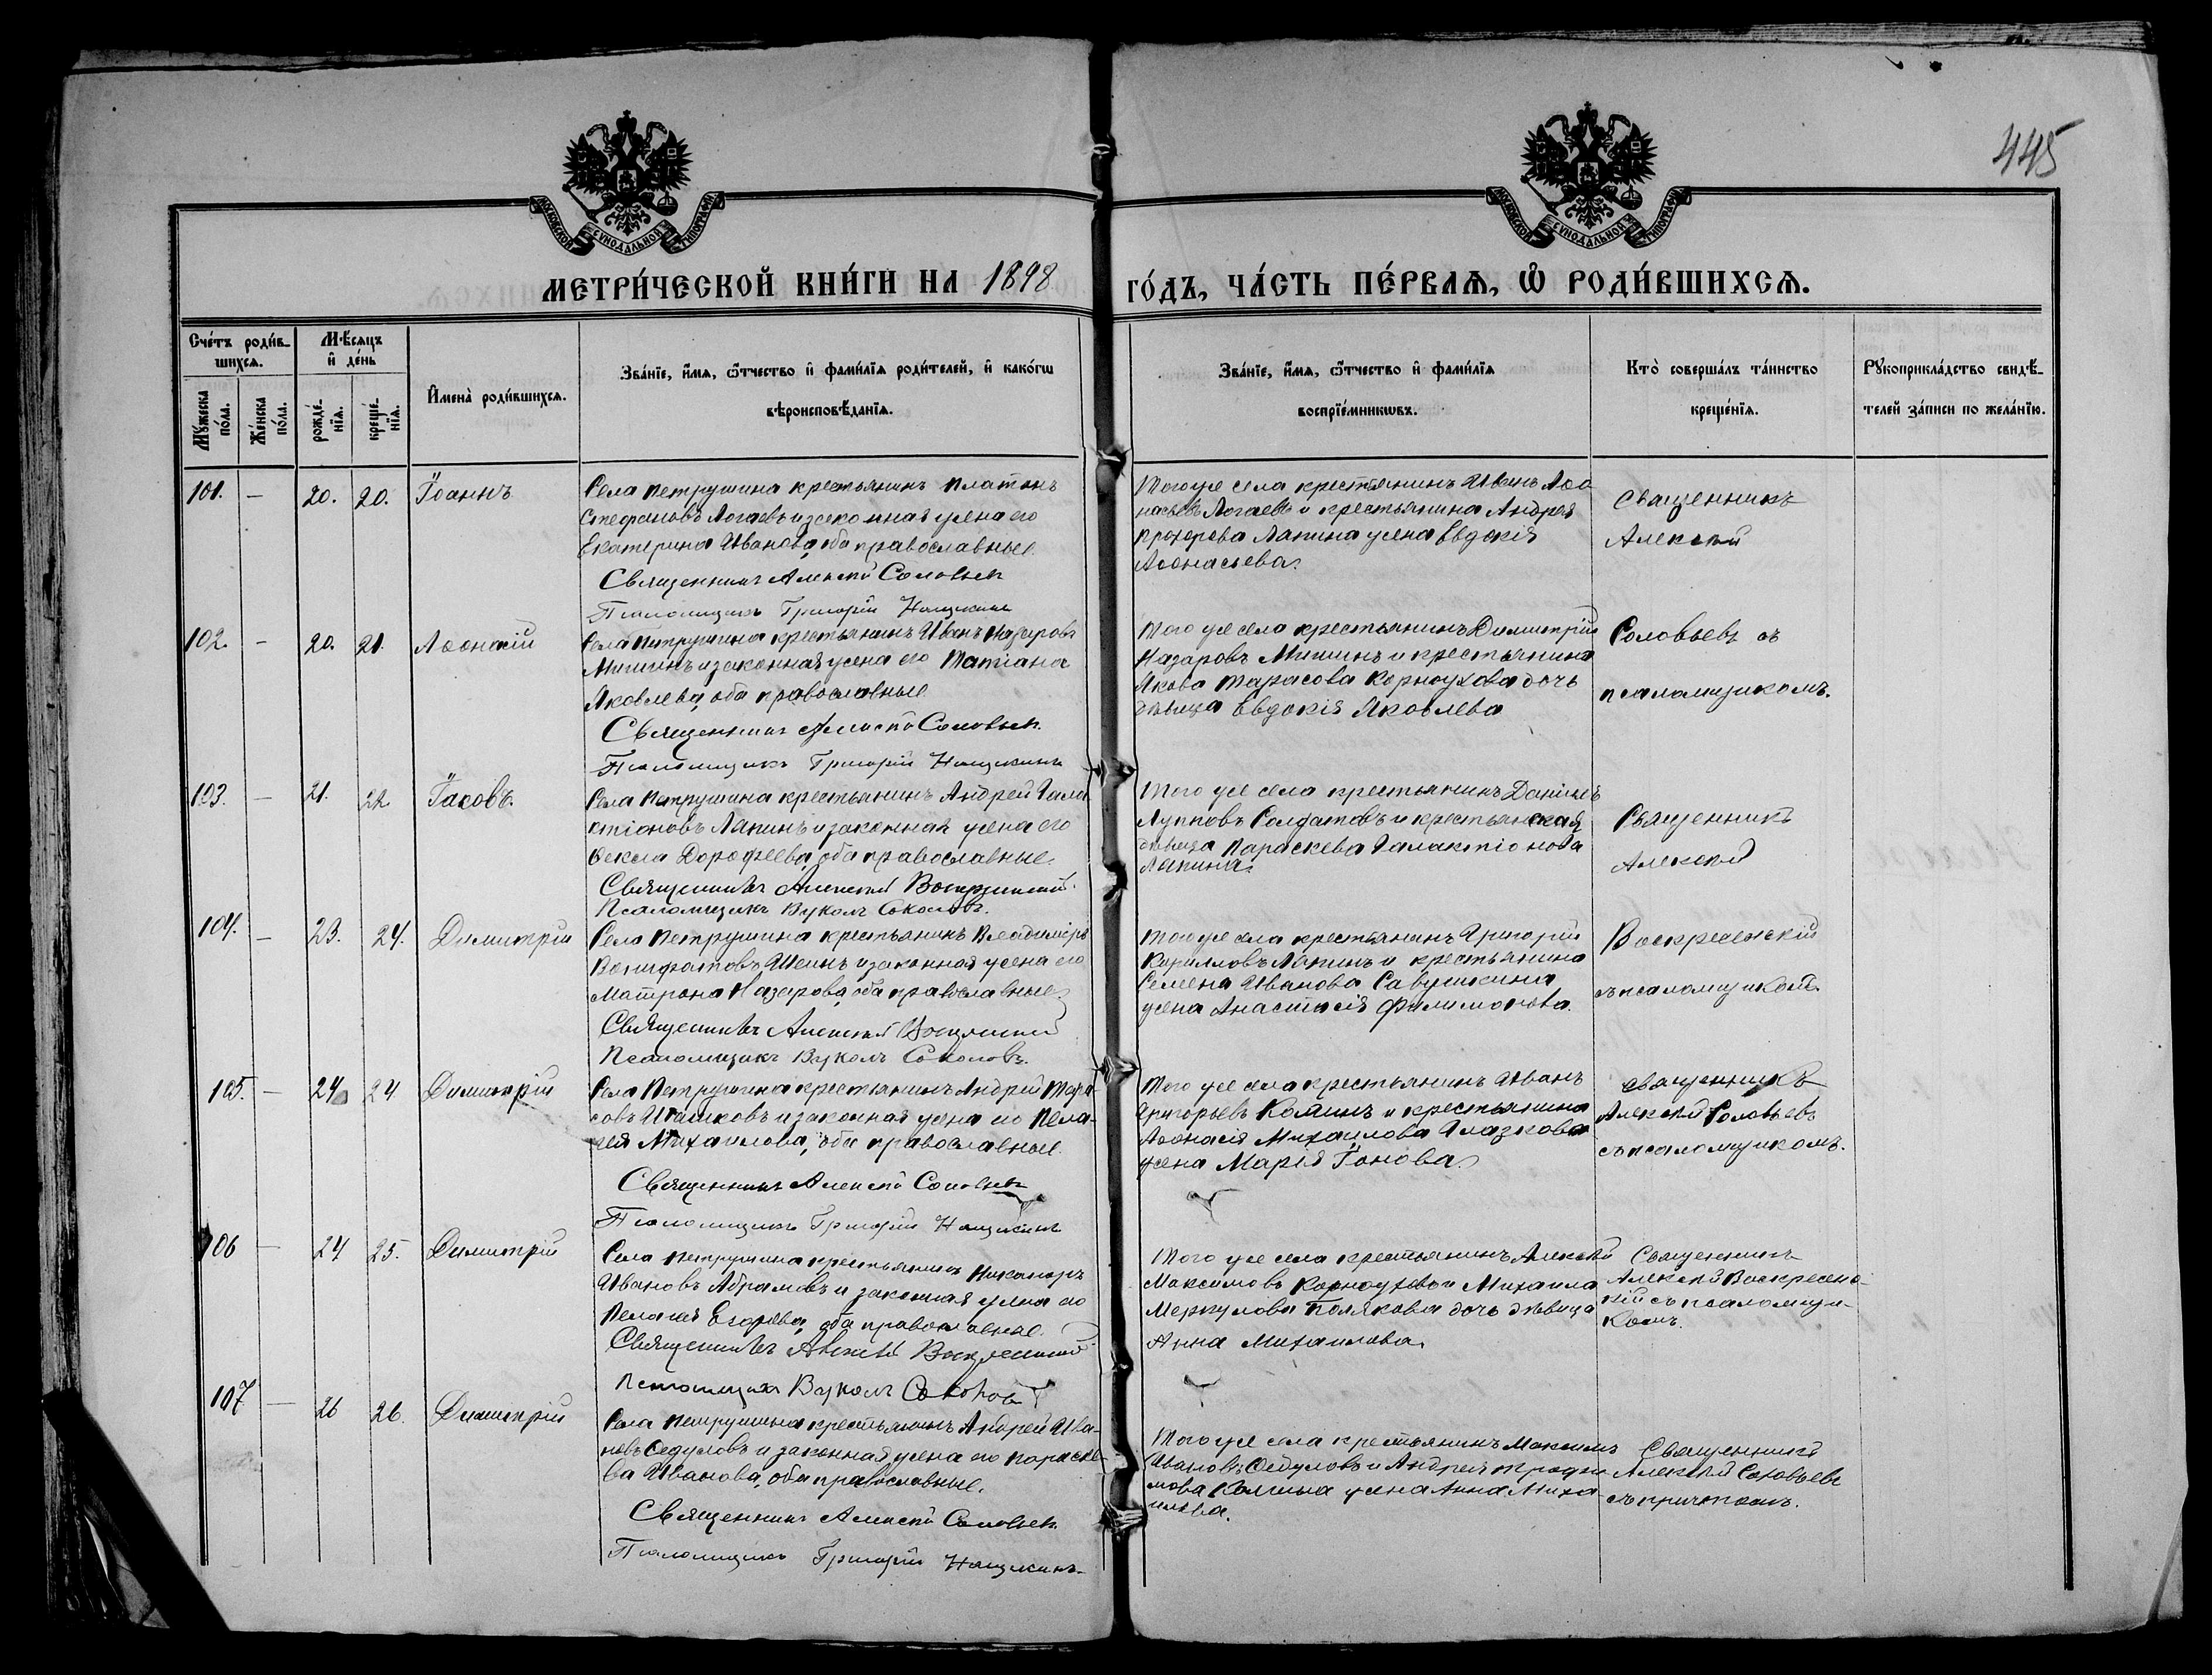 445
МОСКОВСКОЙ СѴНОДАЛЬНОЙ ТИПОГРАФІИ
МОСКОВСКОЙ СѴНОДАЛЬНОЙ ТИПОГРАФІИ
МЕТРИ́ЧЕСКОЙ КНИ́ГИ НА 1898 ГО́ДЪ, ЧА́СТЬ ПЕ́РВАѦ, Ѽ РОДИ́ВШИХСѦ.
Сче́тъ роди́в-
шихсѧ.
Мꙋ́жеска
по́ла.
Же́нска
по́ла.
Мѣ́сяцъ
и҆ де́нь
рожде́-
нїѧ.
креще́-
нїѧ.
И҆мена̀ роди́вшихсѧ.
Зва́нїе, и҆́мѧ, ѻ҆́тчество и҆ фами́лїѧ роди́телей, и҆ како́гѡ
вѣроисповѣ́данїѧ.
Зва́нїе, и҆́мѧ, ѻ҆́тчество и҆ фами́лїѧ
воспрїе́мникѡвъ.
Кто̀ соверша́лъ та́инство
креще́нїѧ.
Рꙋкоприкла́дство свидѣ́-
телей за́писи по жела́нїю.
101. — 20. 20. Іоаннъ
Села Петрушина крестьянинъ Платонъ
Стефановъ Логаевъ и законная жена его
Екатерина Иванова, оба православные.
Священникъ Алексій Соловьевъ
Псаломщикъ Григорій
Того же села крестьянинъ Иванъ Аѳо
насьевъ Логаевъ и крестьянина Андрея
Прохорова Лапина жена Евдокія
Аѳонасьева.
Священникъ
Алексій
102. — 20. 21. Аѳонасій
Села Петрушина крестьянинъ Иванъ Назаровъ
Мишинъ и законная жена его Татіана
Яковлева, оба православные
Священникъ Алексій Соловьевъ.
Псаломщикъ Григорій
Того же села крестьянинъ Димитрій
Назаровъ Мишинъ и крестьянина
Якова Тарасова Корноухова дочь
дѣвица Евдокія Яковлева
Соловьевъ съ
псаломщикомъ.
103. — 21. 22 Іаковъ.
Села Петрушина крестьянинъ Андрей Гала
ктіоновъ Лапинъ и законная жена его
Ѳекла Дорофеева, оба православные.
Священникъ Алексій Воскресенскій.
Псаломщикъ Вуколъ Соколовъ.
Того же села крестьянинъ Даніилъ
Лупповъ Солдатовъ и крестьянская
дѣвица Параскева Галактіонова
Лапина.
Священникъ
Алексій
104. — 23. 24. Димитрій
Села Петрушина крестьянинъ Владиміръ
Вонифатовъ Шеинъ и законная жена его
Матрона Назарова, оба православные.
Священникъ Алексій Воскресенскій
Псаломщикъ Вуколъ Соколовъ.
Того же села крестьянинъ Григорій
Кирилловъ Лапинъ и крестьянина
Семена Иванова Савушкина
жена Анастасія Филимонова.
Воскресенскій
съ псаломщикомъ.
105. — 24 24 Димитрій
Села Петрушина крестьянинъ Андрей Тара-
совъ и законная жена его Пела-
гея Михаилова, оба православные.
Священникъ Алексій Соловьевъ
Псаломщикъ Григорій
Того же села крестьянинъ Иванъ
Григорьевъ и крестьянина
Аѳонасія Михаилова Глазкова
жена Марія Іонова.
Священникъ
Алексій Соловьевъ
съ псаломщикомъ.
106 — 24 25. Димитрій
Села Петрушина крестьянинъ Никаноръ
Ивановъ Абрамовъ и законная жена его
Пелагея Егорова, оба православные.
Священникъ Алексій Воскресенскій
Псаломщикъ Вуколъ Соколовъ
Того же села крестьянинъ Алексѣй
Максимовъ Корноуховъ и Михаила
Меркулова Полякова дочь дѣвица
Анна Михаилова.
Священникъ
Алексій Воскресенс-
кій съ псаломщи-
комъ.
107 — 26 26. Димитрій
Села Петрушина крестьянинъ Андрей Ива-
новъ Ѳедуловъ и законная жена его Параске-
ва Иванова, оба православные.
Священникъ Алексій Соловьевъ.
Псаломщикъ Григорій
Того же села крестьянинъ Максимъ
Ивановъ Ѳедуловъ и Андрея Трофи
мова жена Анна Миха
илова.
Священникъ
Алексій Соловьевъ
съ причтомъ.